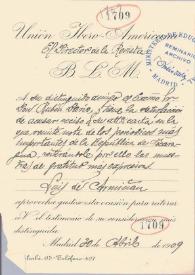 1709
Unión Ibero-Americana
El Director de la Revista
B. L. M.
A su distinguido amigo el Excmo Sr
Don Rubén Darío, y tiene la satisfacción
de acusar recibo de su atta carta en la
que remite nota de los periódicos más
importantes de la República de Nicara-
gua, reiterándole por ello las mues-
tras de gratitud más expresivas
Luis de Armiñán
aprovecha gustoso esta ocasión para reiterar
a V. el testimonio de su consideración más
distinguida.
1709
Madrid 20 de Abril de 1909
SEMINARIO
ARCHIVO
MADRID